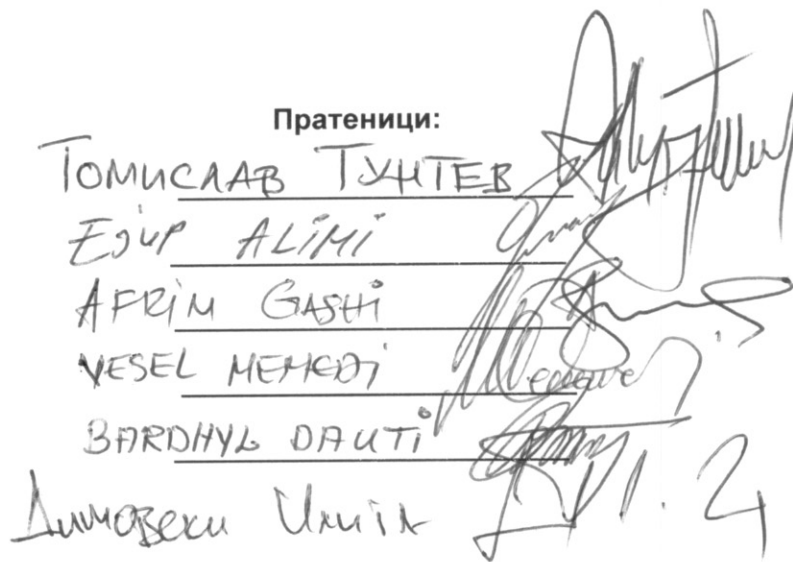 Пратеници:
ТОМИСЛАВ ТУНТЕВ
EJUP ALIMI
AFRIM GASHI
VESEL MEMEDI
BARDHYL DAUTI
Димовски Илија